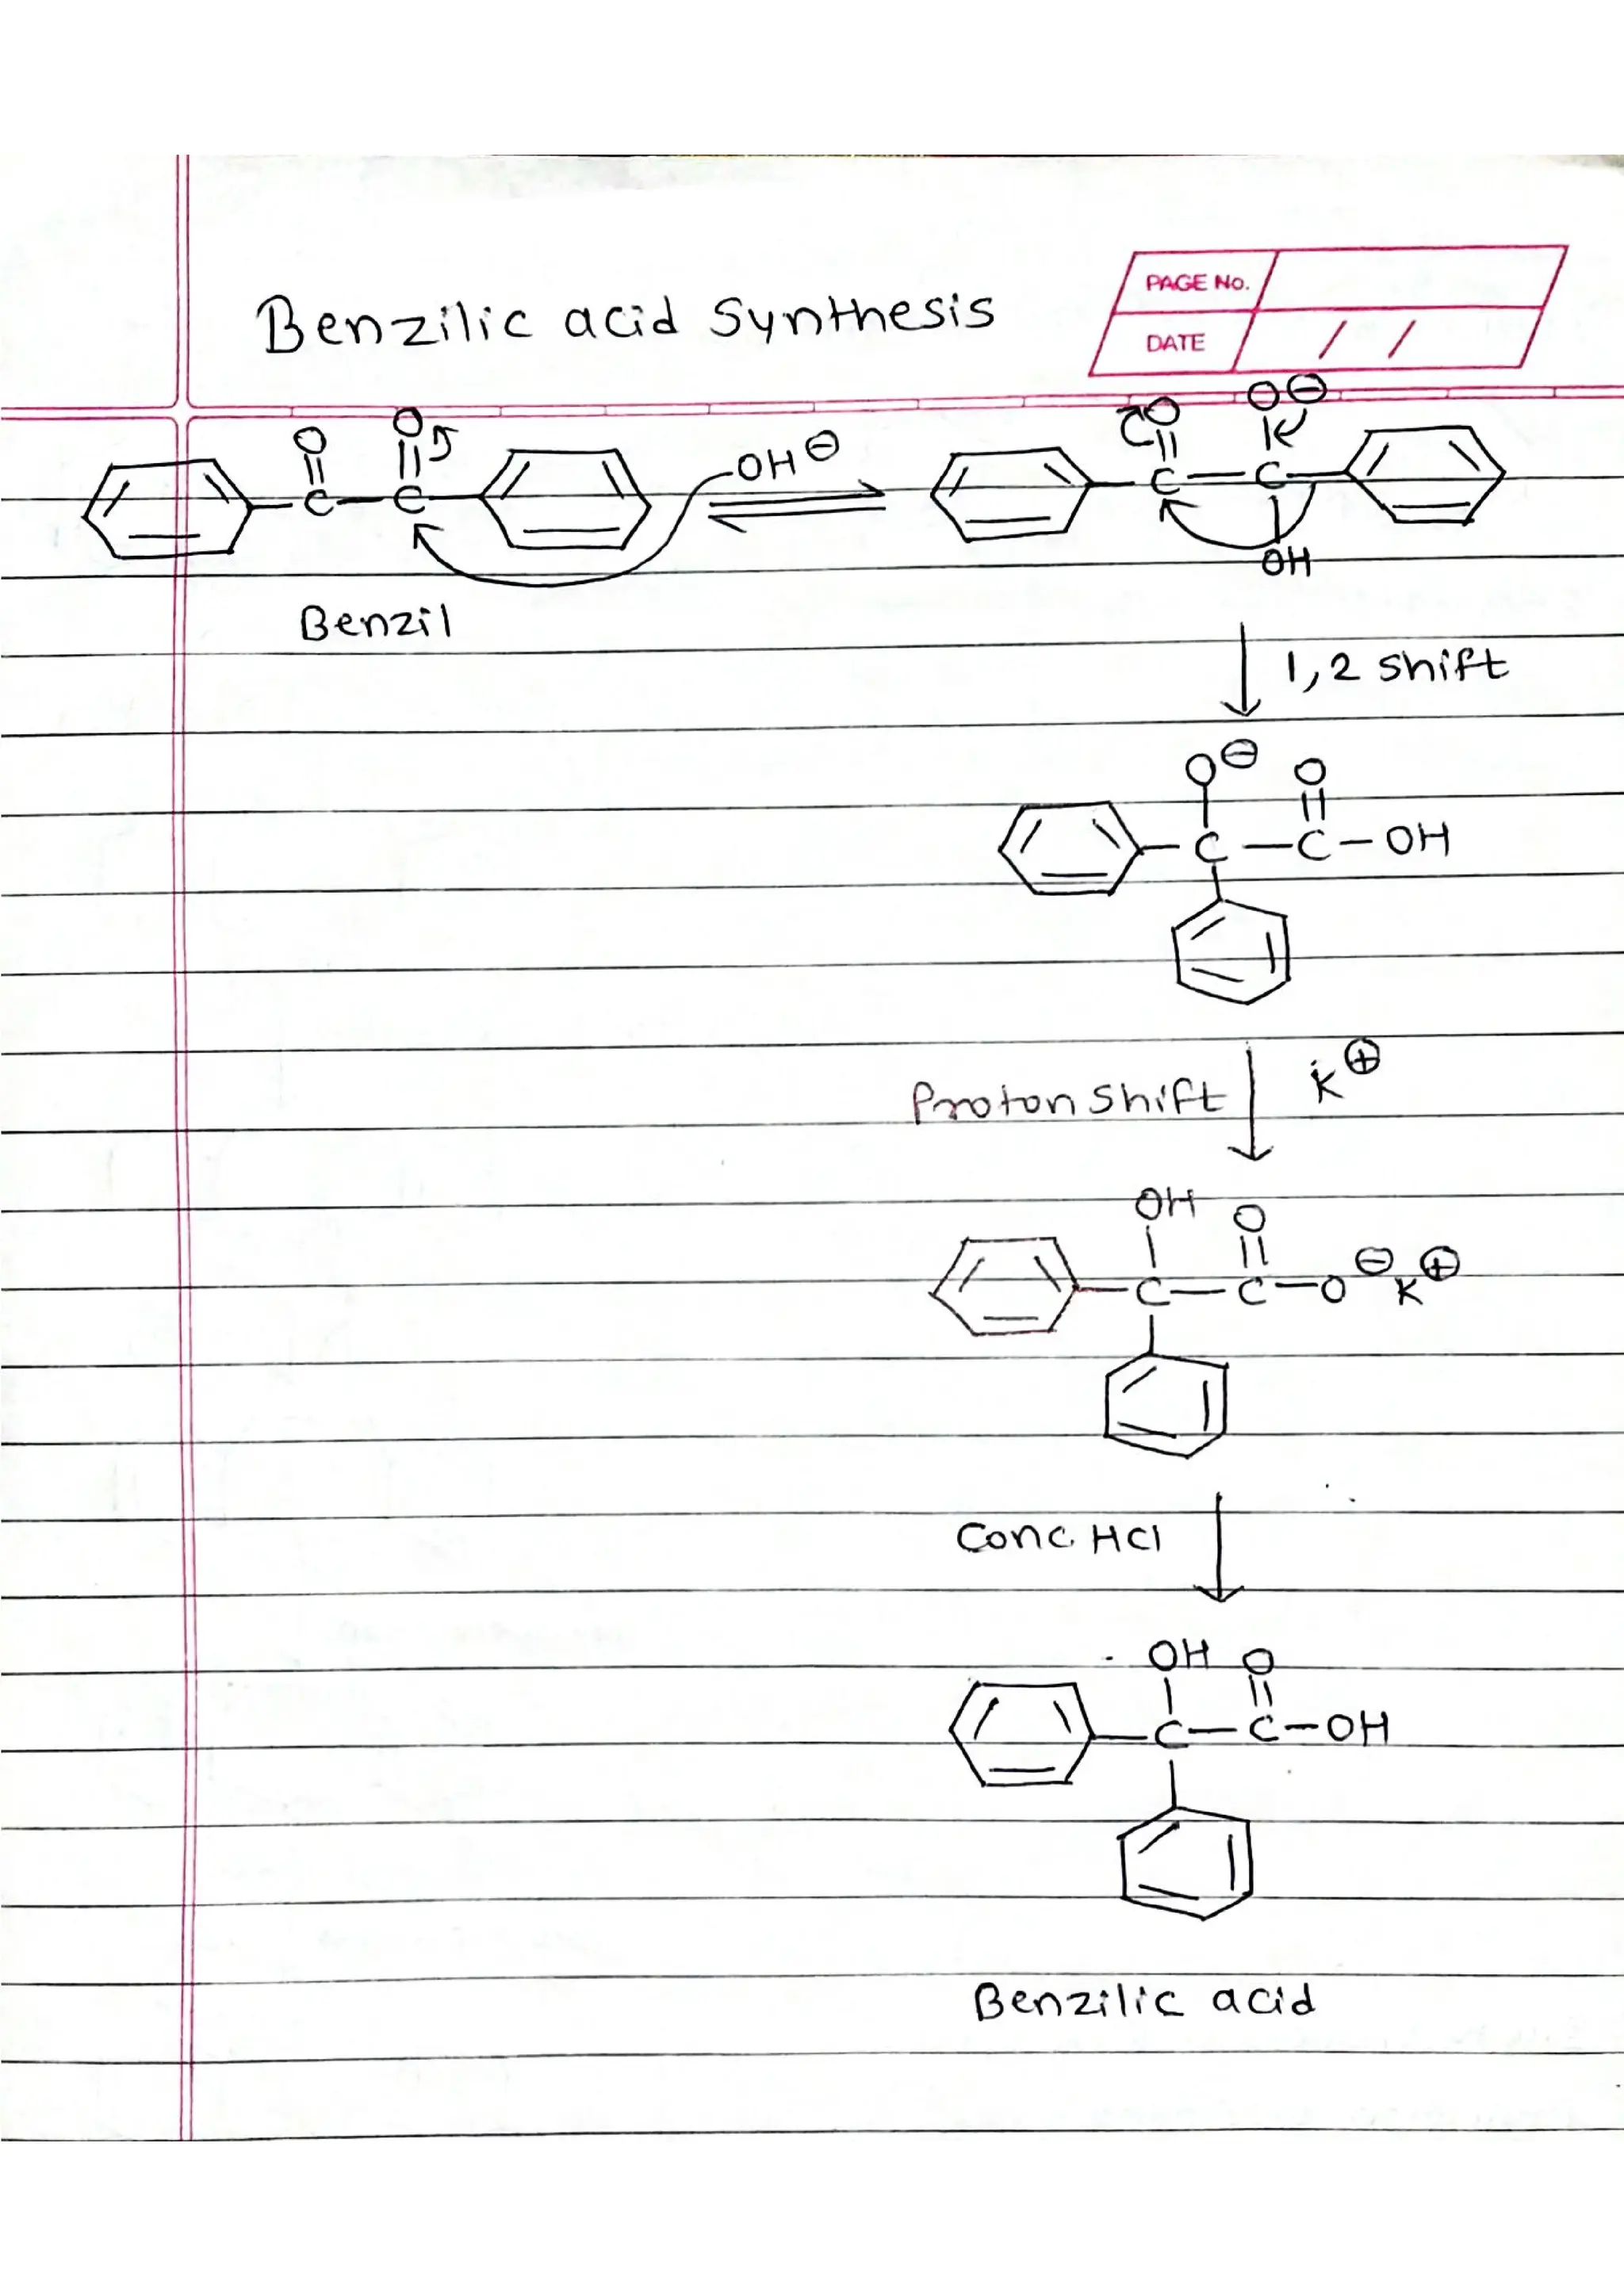 PAGE No.
Benzilic acid synthesis
DATE / /
O O OH⊖ O O⊖
C C C C
OH
Benzil
1,2 shift
O⊖ O
C C OH
Proton shift K⊕
OH O
C C O⊖ K⊕
Conc. HCl
OH O
C C OH
Benzilic acid